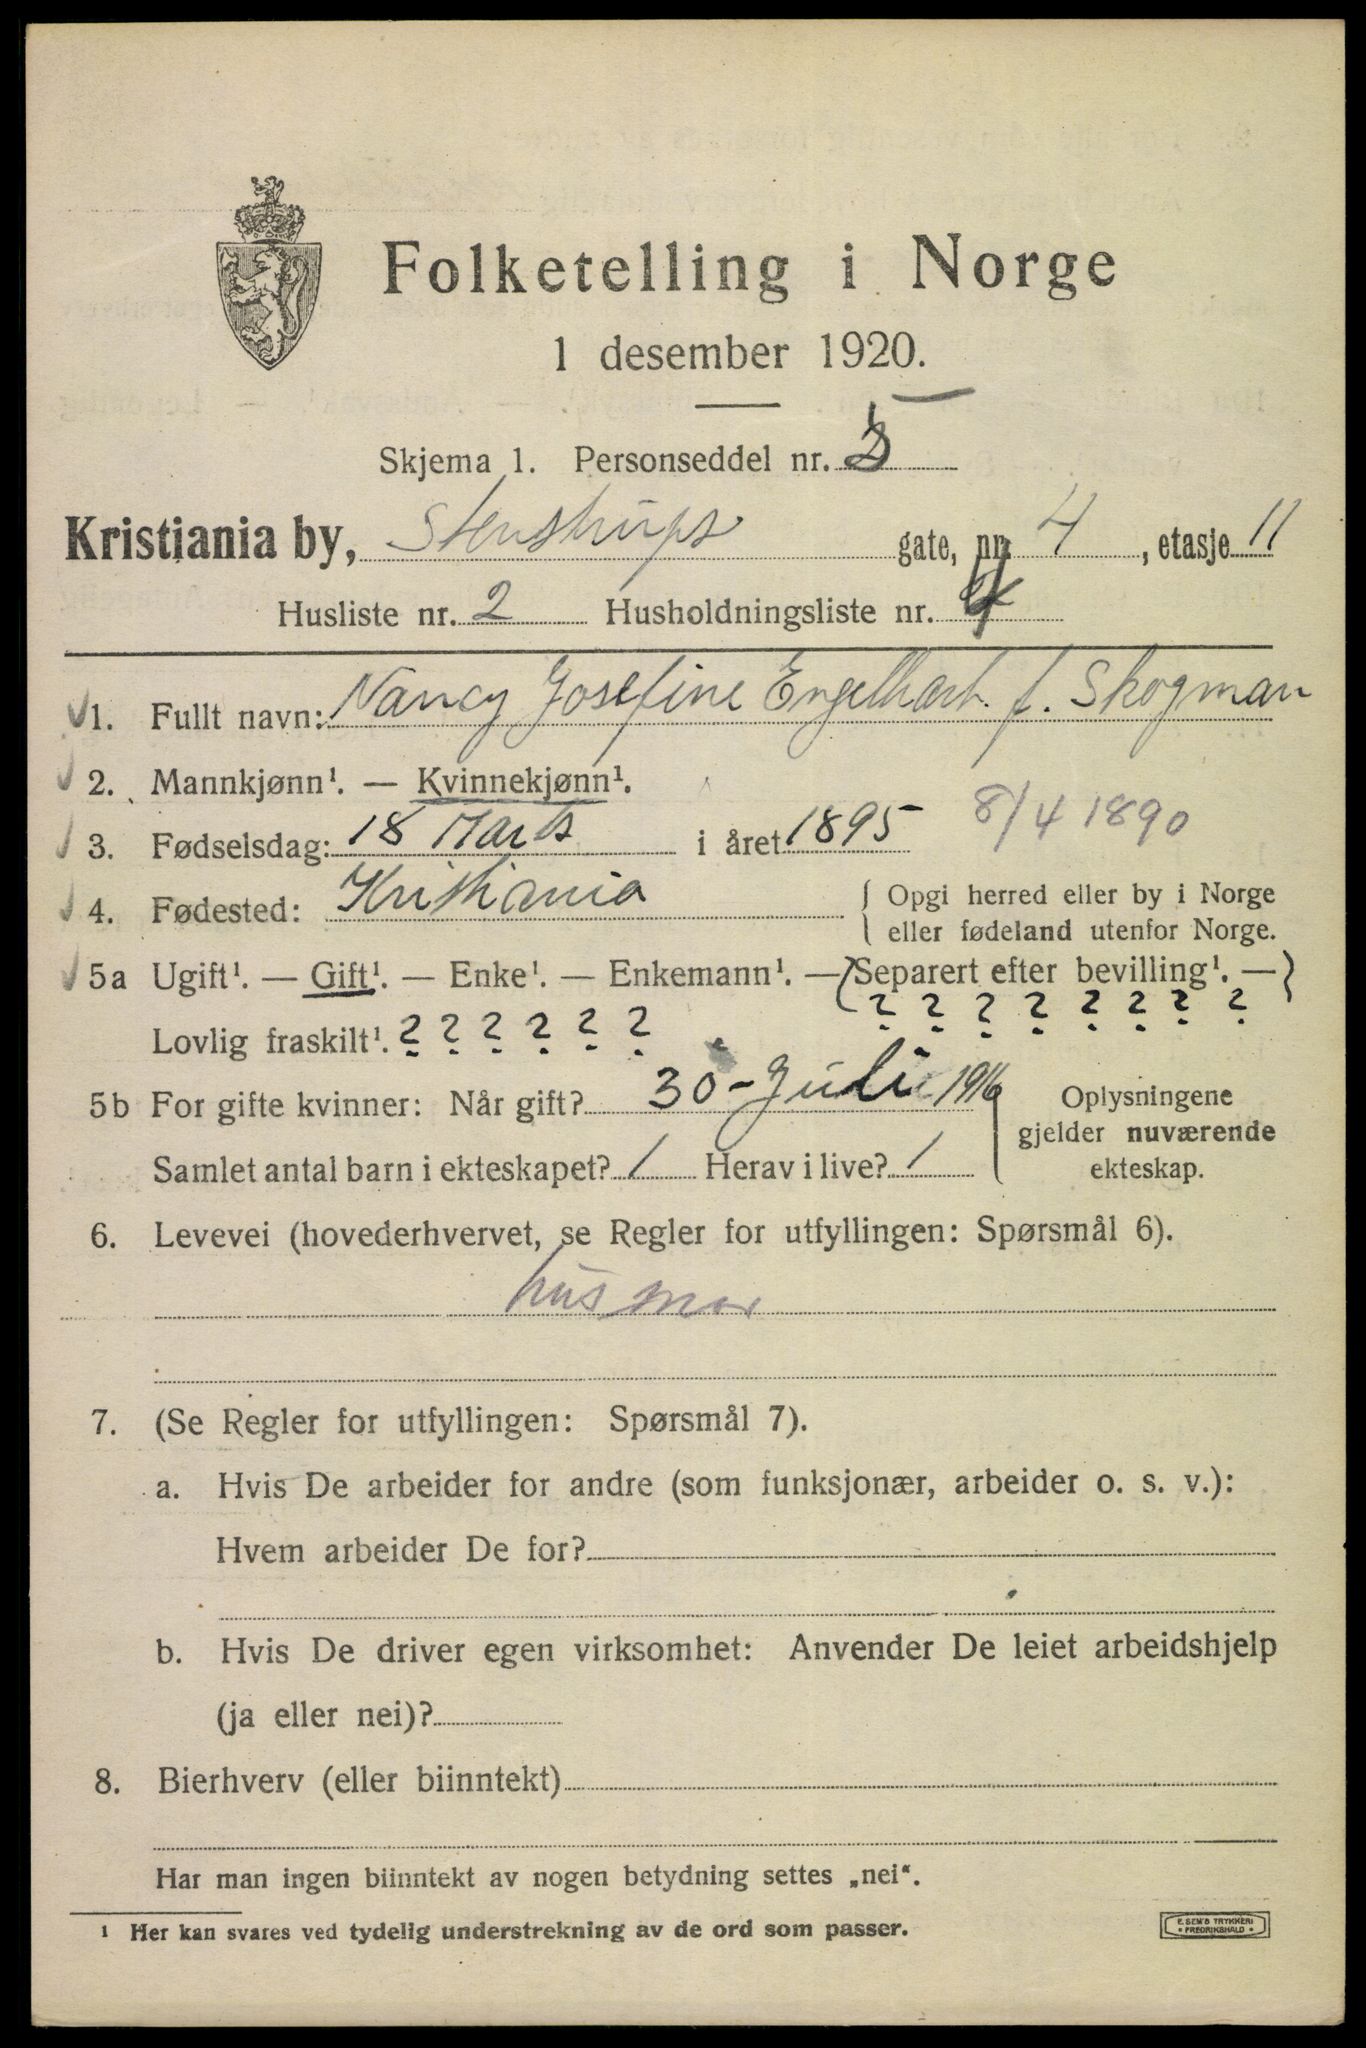 Folketelling i Norge
1 desember 1920.
Skjema 1. Personseddel nr.
Kristiania by, Stenstrups gate, nr. 4, etasje 11
Husliste nr. 2 Husholdningsliste nr. 4
1. Fullt navn: Nancy Josefine Engelhart. f. Skogman
2. Mannkjønn¹. — Kvinnekjønn¹.
3. Fødselsdag: 18 Marts i året 1895 8/4 1890
4. Fødested: Kristiania { Opgi herred eller by i Norge
eller fødeland utenfor Norge.
5a Ugift¹. — Gift¹. — Enke¹. — Enkemann¹. — (Separert efter bevilling¹. — }
? ? ? ? ? ? ? ?
Lovlig fraskilt¹. ? ? ? ? ? ?
5b For gifte kvinner: Når gift? 30 - Juli 1916
Samlet antal barn i ekteskapet? 1 Herav i live? 1
Oplysningene
gjelder nuværende
ekteskap.
6. Levevei (hovederhvervet, se Regler for utfyllingen: Spørsmål 6).
husmor
7. (Se Regler for utfyllingen: Spørsmål 7).
a. Hvis De arbeider for andre (som funksjonær, arbeider o. s. v.):
Hvem arbeider De for?
b. Hvis De driver egen virksomhet: Anvender De leiet arbeidshjelp
(ja eller nei)?
8. Bierhverv (eller biinntekt)
Har man ingen biinntekt av nogen betydning settes „nei“.
¹ Her kan svares ved tydelig understrekning av de ord som passer.
E. SEM'S TRYKKERI
• FREDRIKSHALD •